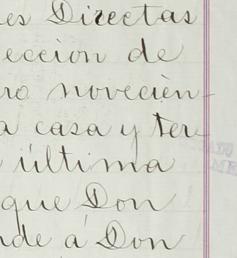 es Directas
eccion de
ro novecien-
a casa y ter-
última
que Don
nde á Don